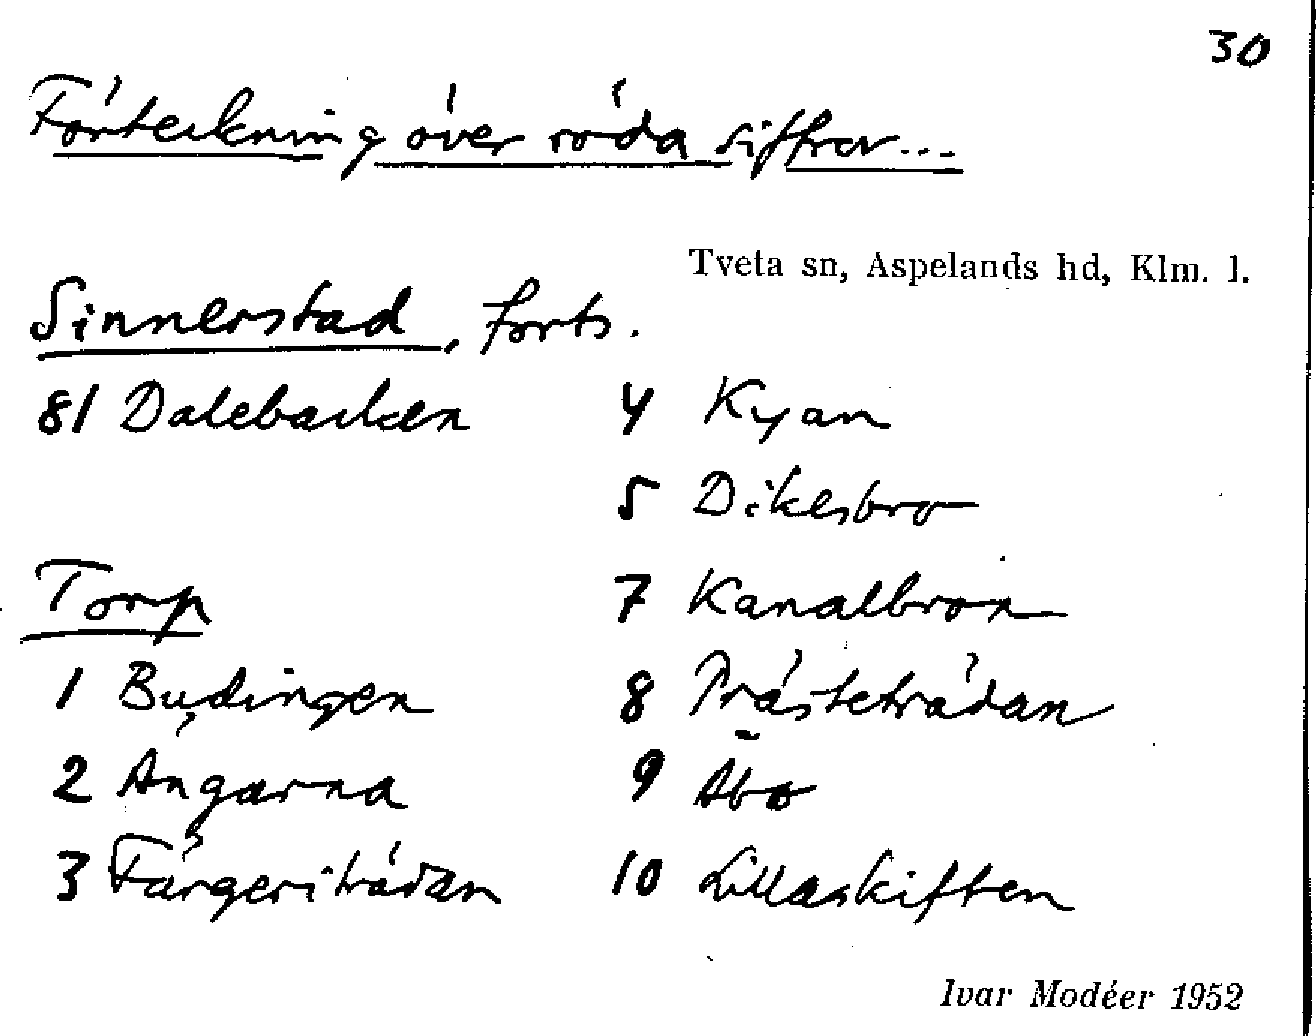 30
Förteckning över röda siffror...
Tveta sn, Aspelands hd, Klm. l.
Sinnerstad, forts.
81 Dalebacken
Torp
1 Budingen
2 Ängarna
3 Färgeriträdan
4 Kyan
5 Dikesbro
7 Kanalbron
8 Prästeträdan
9 Åbo
10 Lillaskiften
Ivar Modéer 1952